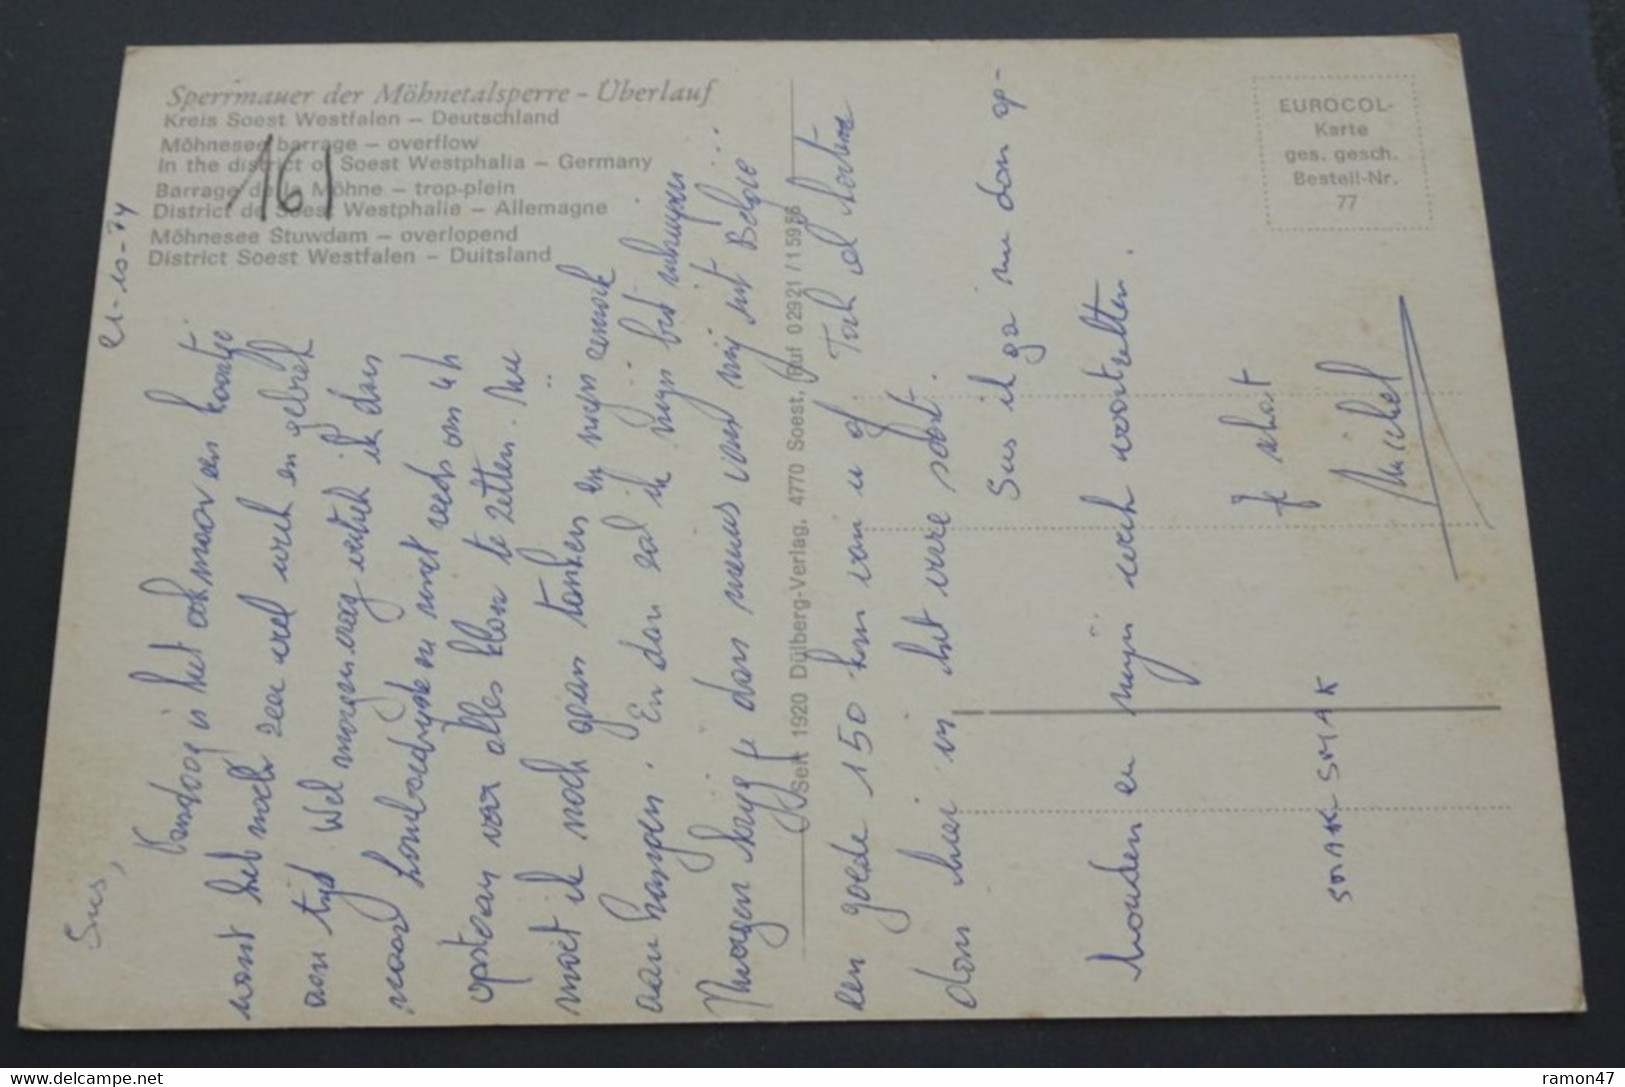 Sperrmauer der Möhnetalsperre - Überlauf
Kreis Soest Westfalen – Deutschland
Möhnesee barrage – overflow
In the district of Soest Westphalia – Germany
Barrage de la Möhne – trop-plein
District de Soest Westphalie – Allemagne
Möhnesee Stuwdam – overlopend
District Soest Westfalen – Duitsland
161
EUROCOL-
Karte
ges. gesch.
Bestell-Nr.
77
Seit 1920 Dülberg-Verlag, 4770 Soest, Ruf 02921/15986
21-10-74
Sus,
Vandaag is het ook maar een kaartje
want heb nogal zeer veel werk en gebrek
aan tijd Wel morgenvroeg vertrek ik dan
naar en moet reeds om 4h
opstaan voor alles klaar te zetten. Nu
moet ik nog gaan tanken en mijn
aan hangen. En dan zal ik mijn bed
Morgen krijg je dan nieuws van mij uit België
een goede 150 km van u af Toch al kortere
dan hier in het verre Soest.
Sus ik ga nu dan op-
houden en mijn werk voortzetten.
Je schat
Michel
SMAK SMAK
ramon47